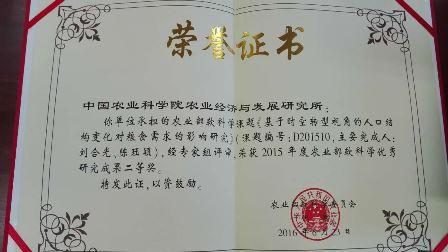 荣誉证书
中国农业科学院农业经济与发展研究所:
你单位承担的农业部软科学课题《基于时空转型视角的人口结
构变化对粮食需求的影响研究》(课题编号:D201510,主要完成人:
刘合光、陈珏颖),经专家组评审,荣获2015年度农业部软科学优秀
研究成果二等奖。
特发此证,以资鼓励。
委员会
2016年6月23日